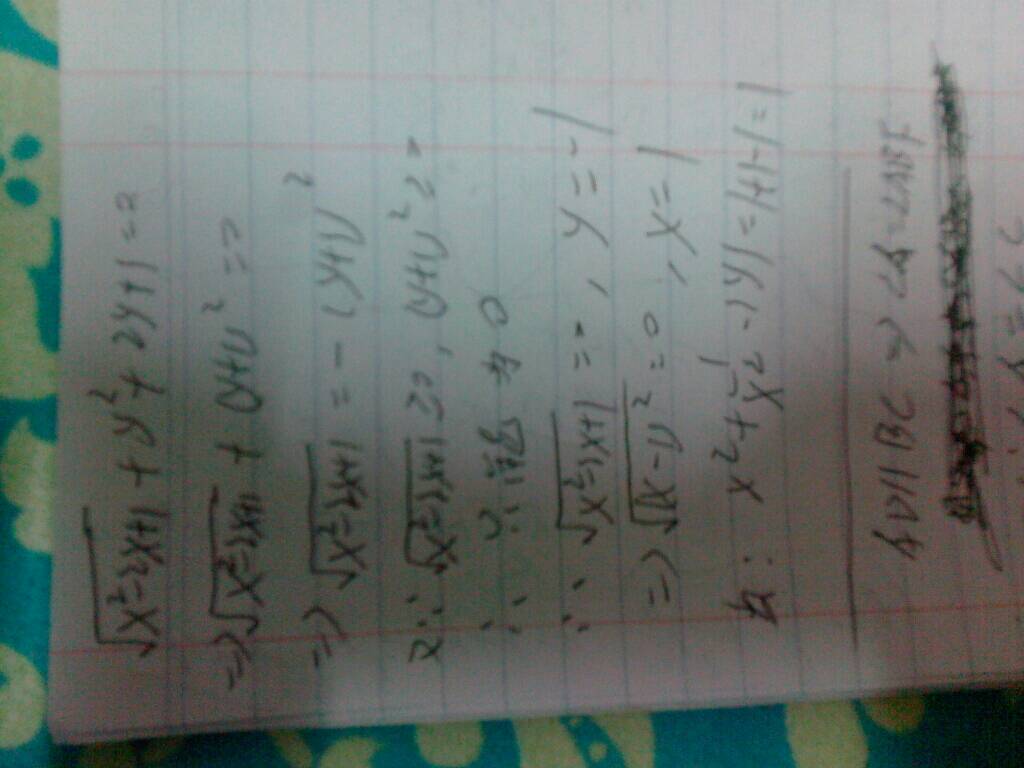 √x²-2x+1 + y² + 2y+1=0
⇒√x²-2x+1 + (y+1)²=0
⇒ √x²-2x+1 = -(y+1)²
又∵ √x²-2x+1 ≥0, (y+1)²≥0
∴ 只能为 0
∴ √x²-2x+1 =0, y=-1
⇒√(x-1)²=0, x=1
故: x²+1/x²-|y|=1+1-1=1
AD∥BC ⇒ ∠A=∠ABF